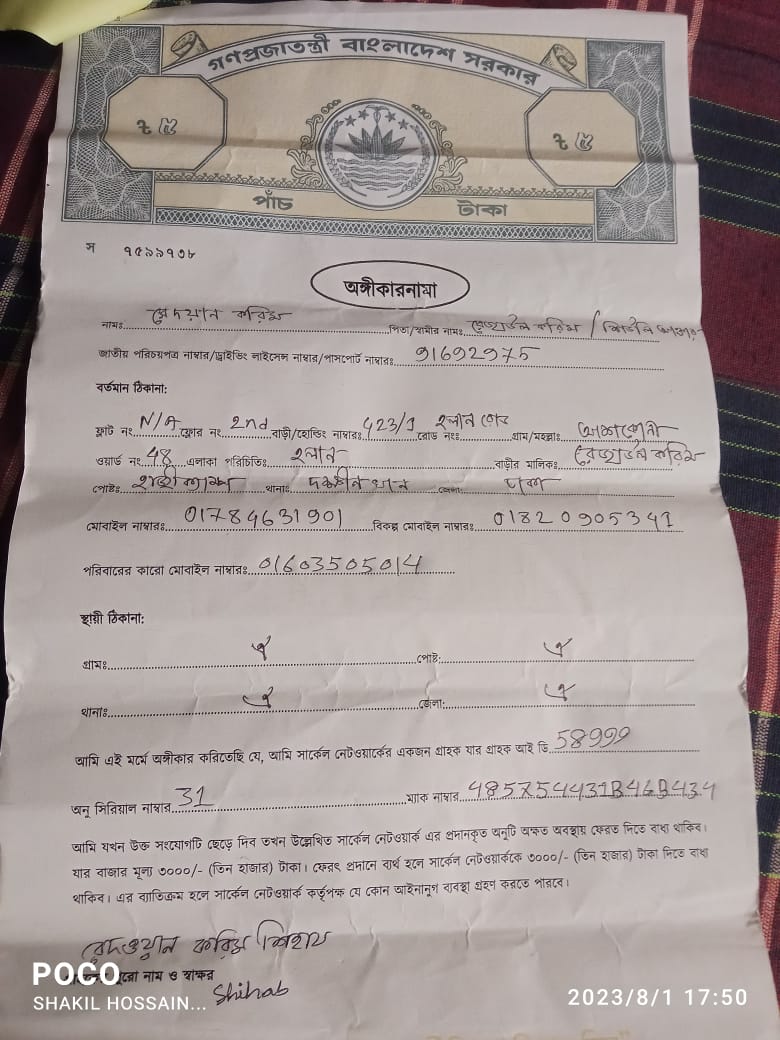 গণপ্রজাতন্ত্রী বাংলাদেশ সরকার
৳ ৫ ৳ ৫
পাঁচ টাকা
স ৭৫৯৯৭৩৮
অঙ্গীকারনামা
নামঃ রেদয়ান করিম পিতা/স্বামীর নামঃ রেজাউল করিম /
জাতীয় পরিচয়পত্র নাম্বার/ড্রাইভিং লাইসেন্স নাম্বার/পাসপোর্ট নাম্বারঃ 91692975
বর্তমান ঠিকানা:
ফ্লাট নং N/A ফ্লোর নং 2nd বাড়ী/হোল্ডিং নাম্বারঃ 423/1 রোড নংঃ হলান রোড গ্রাম/মহল্লাঃ আশকোনা
ওয়ার্ড নং 48 এলাকা পরিচিতিঃ হলান বাড়ীর মালিকঃ রেজাউল করিম
পোষ্টঃ থানাঃ দক্ষিণ খান জেলাঃ ঢাকা
মোবাইল নাম্বারঃ 01784631901 বিকল্প মোবাইল নাম্বারঃ 01820905341
পরিবারের কারো মোবাইল নাম্বারঃ 01603505014
স্থায়ী ঠিকানা:
গ্রামঃ ঐ পোষ্ট: ঐ
থানাঃ ঐ জেলা: ঐ
আমি এই মর্মে অঙ্গীকার করিতেছি যে, আমি সার্কেল নেটওয়ার্কের একজন গ্রাহক যার গ্রাহক আই ডি 58999
অনু সিরিয়াল নাম্বার 31 ম্যাক নাম্বার 485754431B46B434
আমি যখন উক্ত সংযোগটি ছেড়ে দিব তখন উল্লেখিত সার্কেল নেটওয়ার্ক এর প্রদানকৃত অনুটি অক্ষত অবস্থায় ফেরত দিতে বাধ্য থাকিব।
যার বাজার মূল্য ৩০০০/- (তিন হাজার) টাকা। ফেরৎ প্রদানে ব্যর্থ হলে সার্কেল নেটওয়ার্ককে ৩০০০/- (তিন হাজার) টাকা দিতে বাধ্য
থাকিব। এর ব্যতিক্রম হলে সার্কেল নেটওয়ার্ক কর্তৃপক্ষ যে কোন আইনানুগ ব্যবস্থা গ্রহণ করতে পারবে।
রেদওয়ান করিম শিহাব
পুরো নাম ও স্বাক্ষর
Shihab
POCO
SHAKIL HOSSAIN...
2023/8/1 17:50